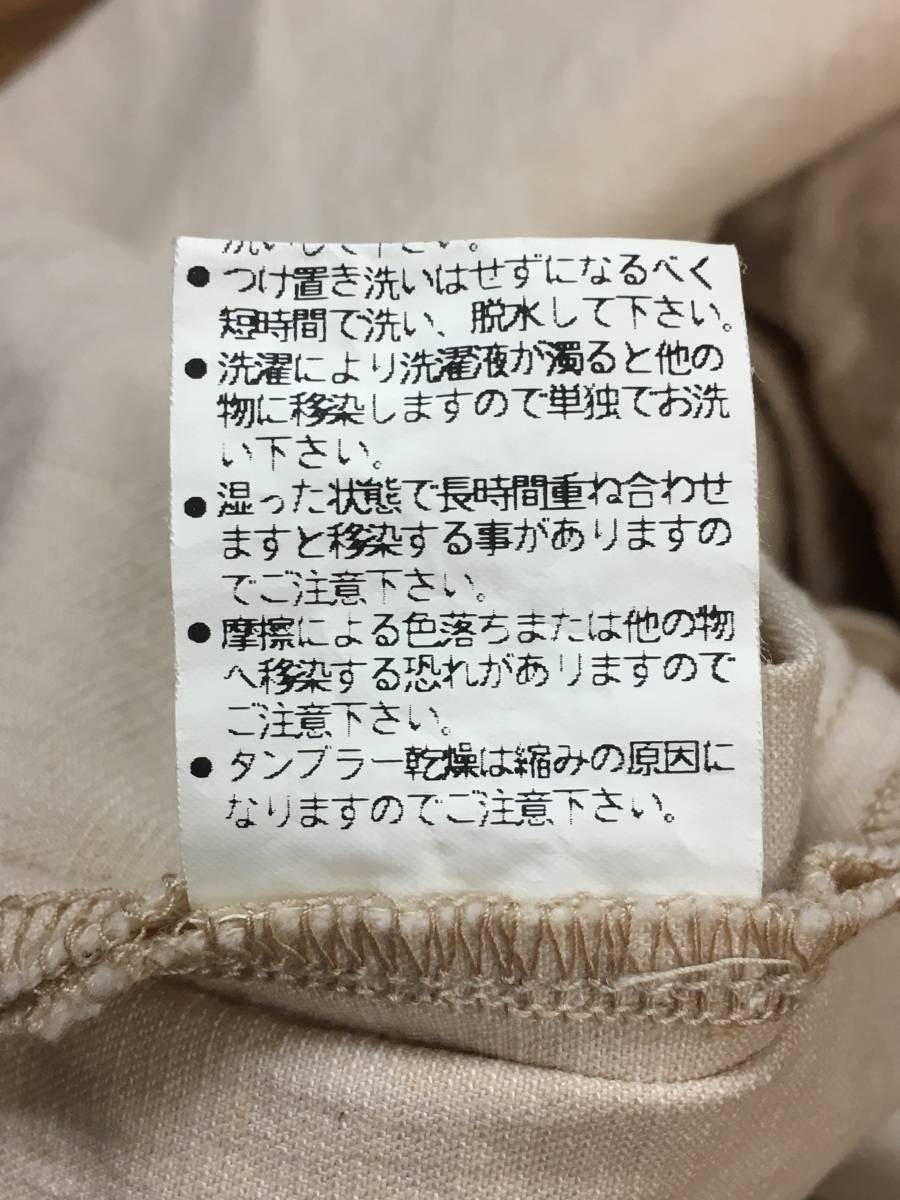 洗いして下さい。
●つけ置き洗いはせずになるべく
短時間で洗い、脱水して下さい。
●洗濯により洗濯液が濁ると他の
物に移染しますので単独でお洗
い下さい。
●湿った状態で長時間重ね合わせ
ますと移染する事がありますの
でご注意下さい。
●摩擦による色落ちまたは他の物
へ移染する恐れがありますので
ご注意下さい。
●タンブラー乾燥は縮みの原因に
なりますのでご注意下さい。